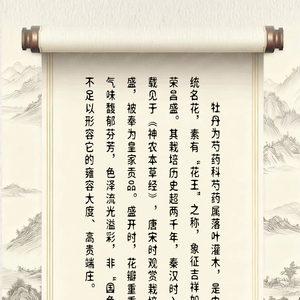 牡丹为芍药科芍药属落叶灌木，是中
统名花，素有“花王”之称，象征吉祥如
荣昌盛。其栽培历史超两千年，秦汉时入
载见于《神农本草经》，唐宋时观赏栽培
盛，被奉为皇家贡品。盛开时，花瓣重重
气味馥郁芬芳，色泽流光溢彩，非“国色
不足以形容它的雍容大度、高贵端庄。